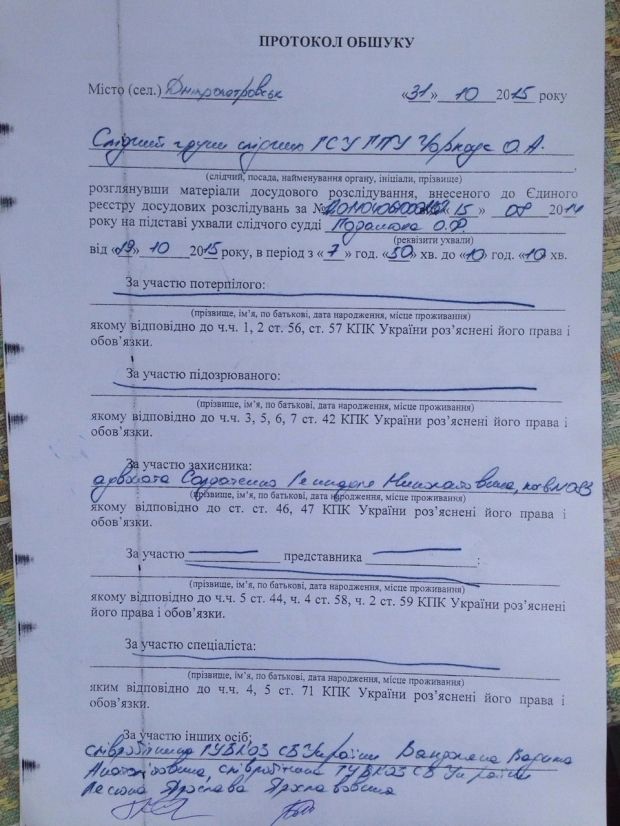 ПРОТОКОЛ ОБШУКУ
Місто (сел.) Дніпропетровськ «31» 10 2015 року
Слідчий групи слідчих ГСУ ГПУ О.А.
(слідчий, посада, найменування органу, ініціали, прізвище)
розглянувши матеріали досудового розслідування, внесеного до Єдиного
реєстру досудових розслідувань за № «15» 08 2014
року на підставі ухвали слідчого судді О.Ф.
(реквізити ухвали)
від «19» 10 2015 року, в період з «7» год. «50» хв. до «10» год. «10» хв.
За участю потерпілого:
(прізвище, ім’я, по батькові, дата народження, місце проживання)
якому відповідно до ч.ч. 1, 2 ст. 56, ст. 57 КПК України роз’яснені його права і
обов’язки.
За участю підозрюваного:
(прізвище, ім’я, по батькові, дата народження, місце проживання)
якому відповідно до ч.ч. 3, 5, 6, 7 ст. 42 КПК України роз’яснені його права і
обов’язки.
За участю захисника:
адвоката
(прізвище, ім’я, по батькові, дата народження, місце проживання)
якому відповідно до ст. ст. 46, 47 КПК України роз’яснені його права і
обов’язки.
За участю представника :
(прізвище, ім’я, по батькові, дата народження, місце проживання)
якому відповідно до ч.ч. 5 ст. 44, ч. 4 ст. 58, ч. 2 ст. 59 КПК України роз’яснені
його права і обов’язки.
За участю спеціаліста:
(прізвище, ім’я, по батькові, дата народження, місце проживання)
яким відповідно до ч.ч. 4, 5 ст. 71 КПК України роз’яснені його права і
обов’язки.
За участю інших осіб:
співробітника СБ України Вадима
співробітника СБ України
Ярослава Ярославовича